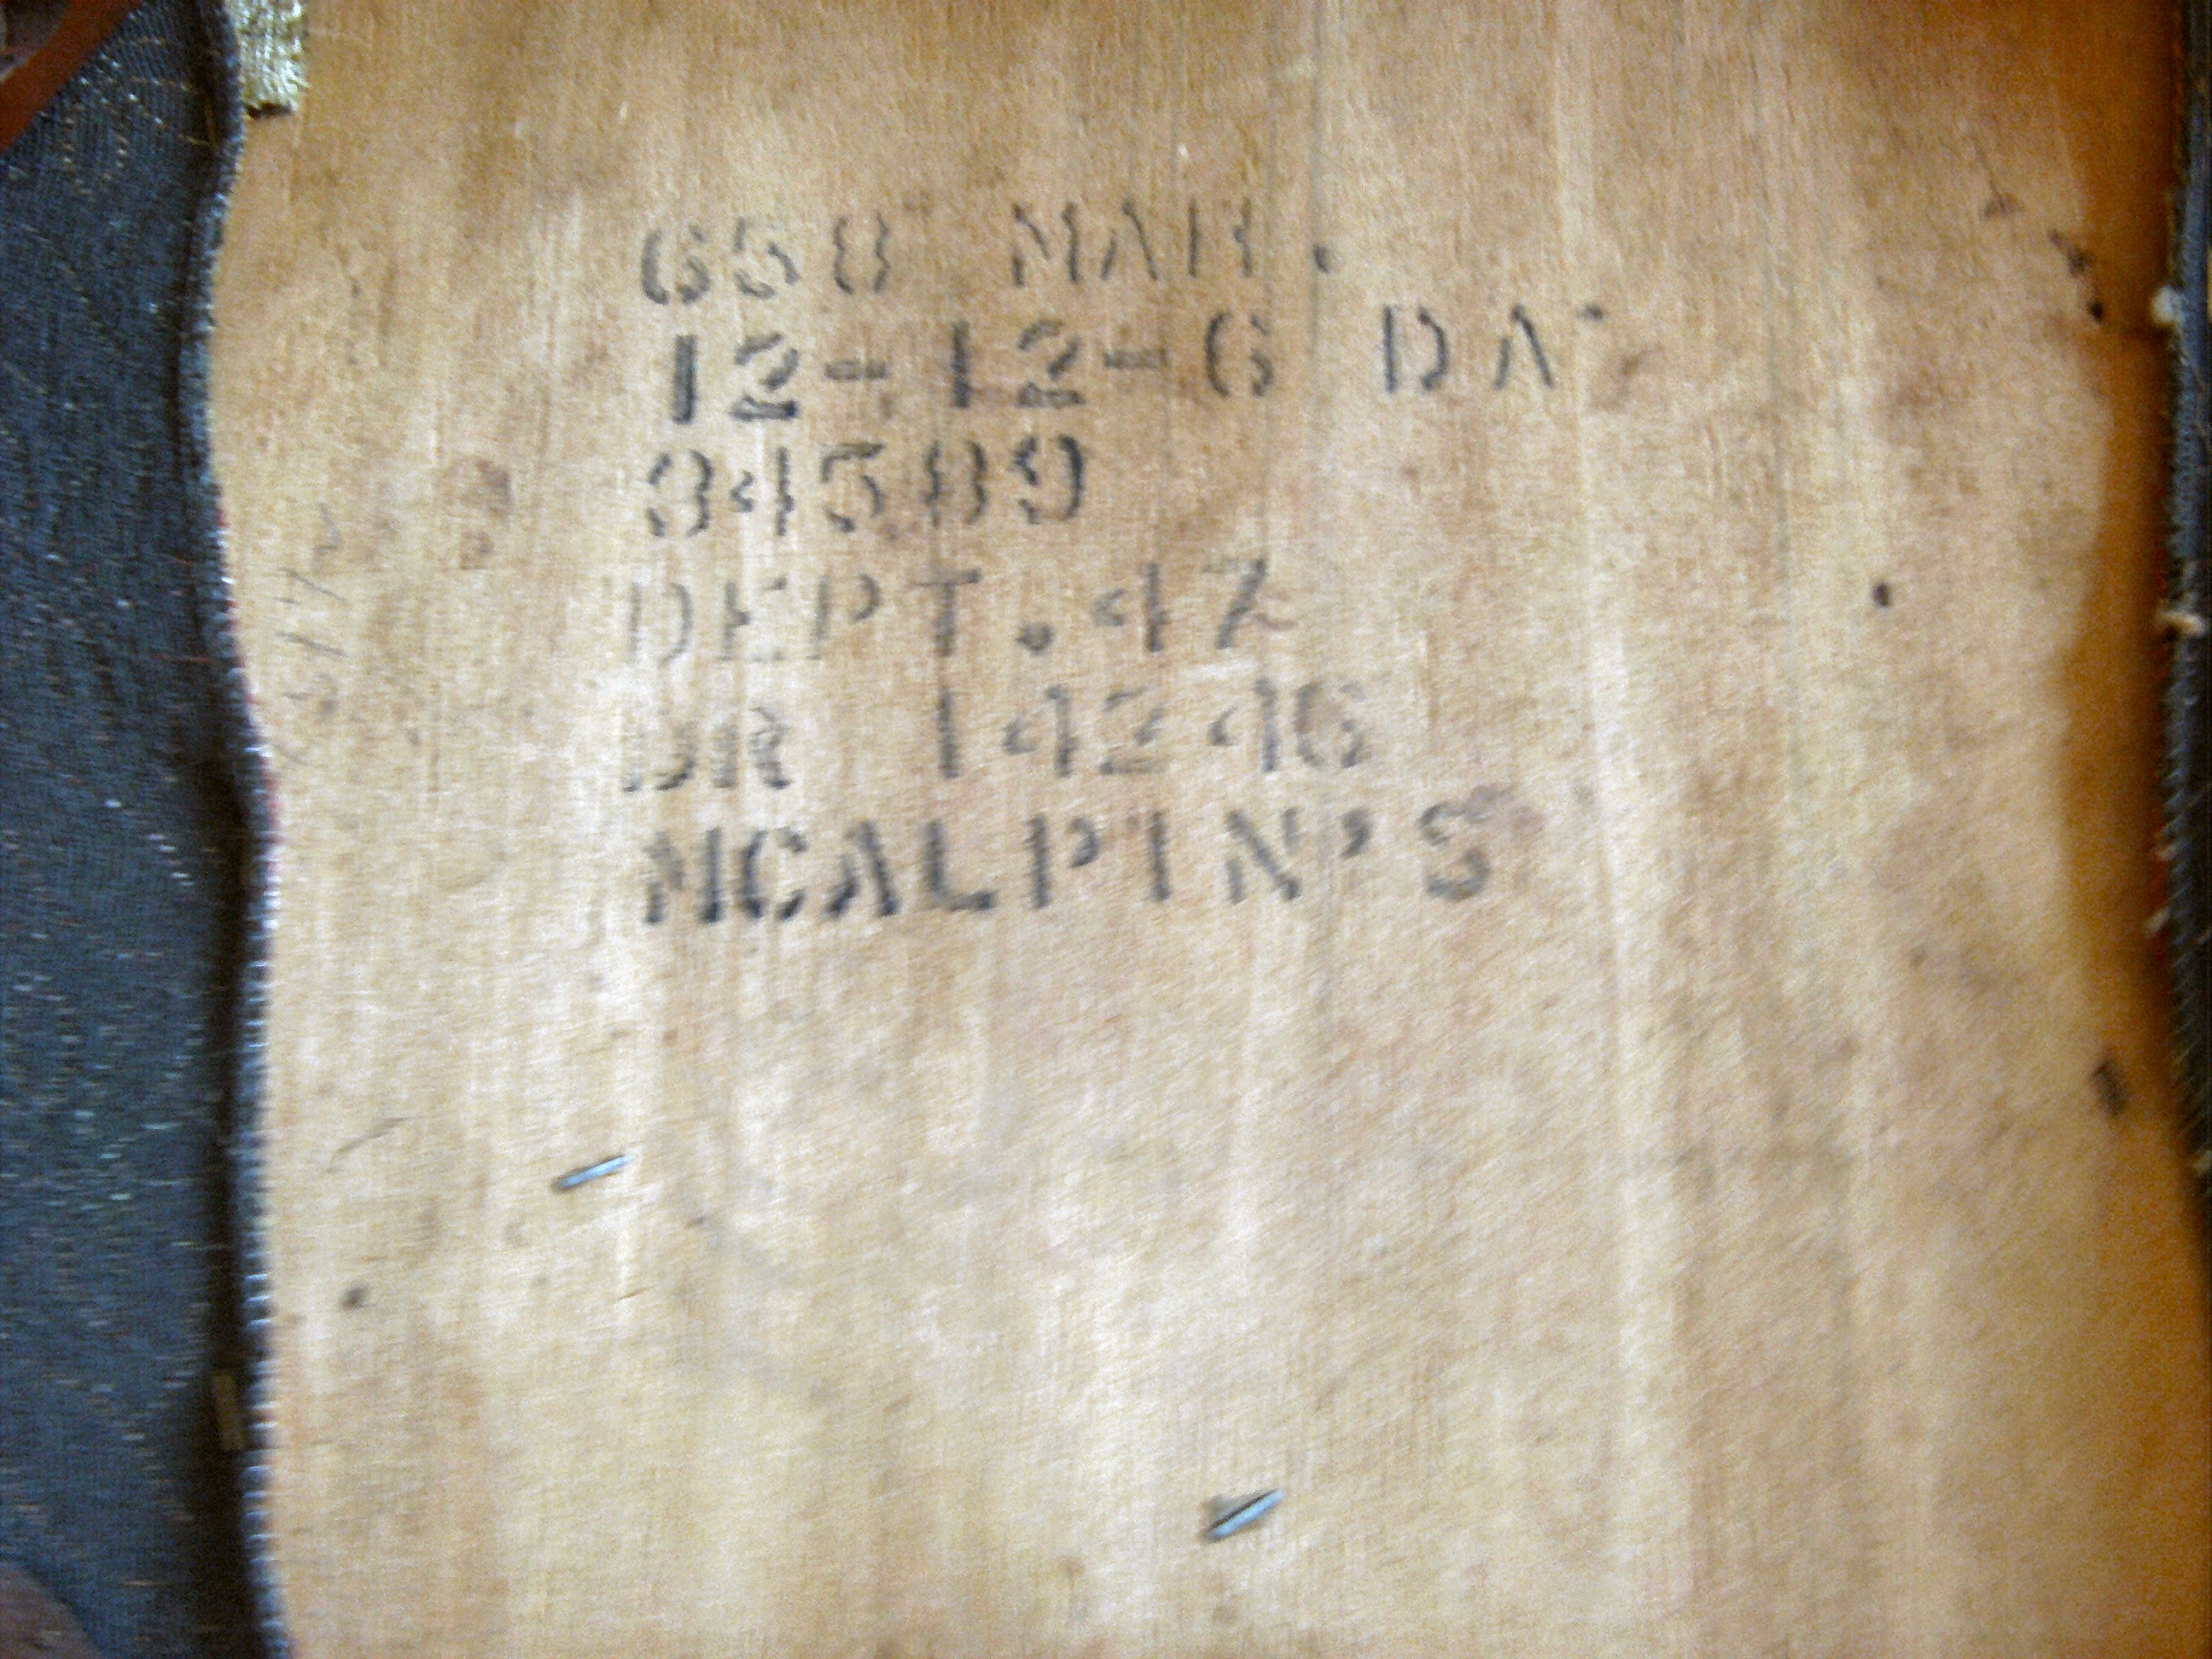 658 MAR.
12-12-6 DA
34589
DEPT. 47
DR 14246
MCALPIN'S